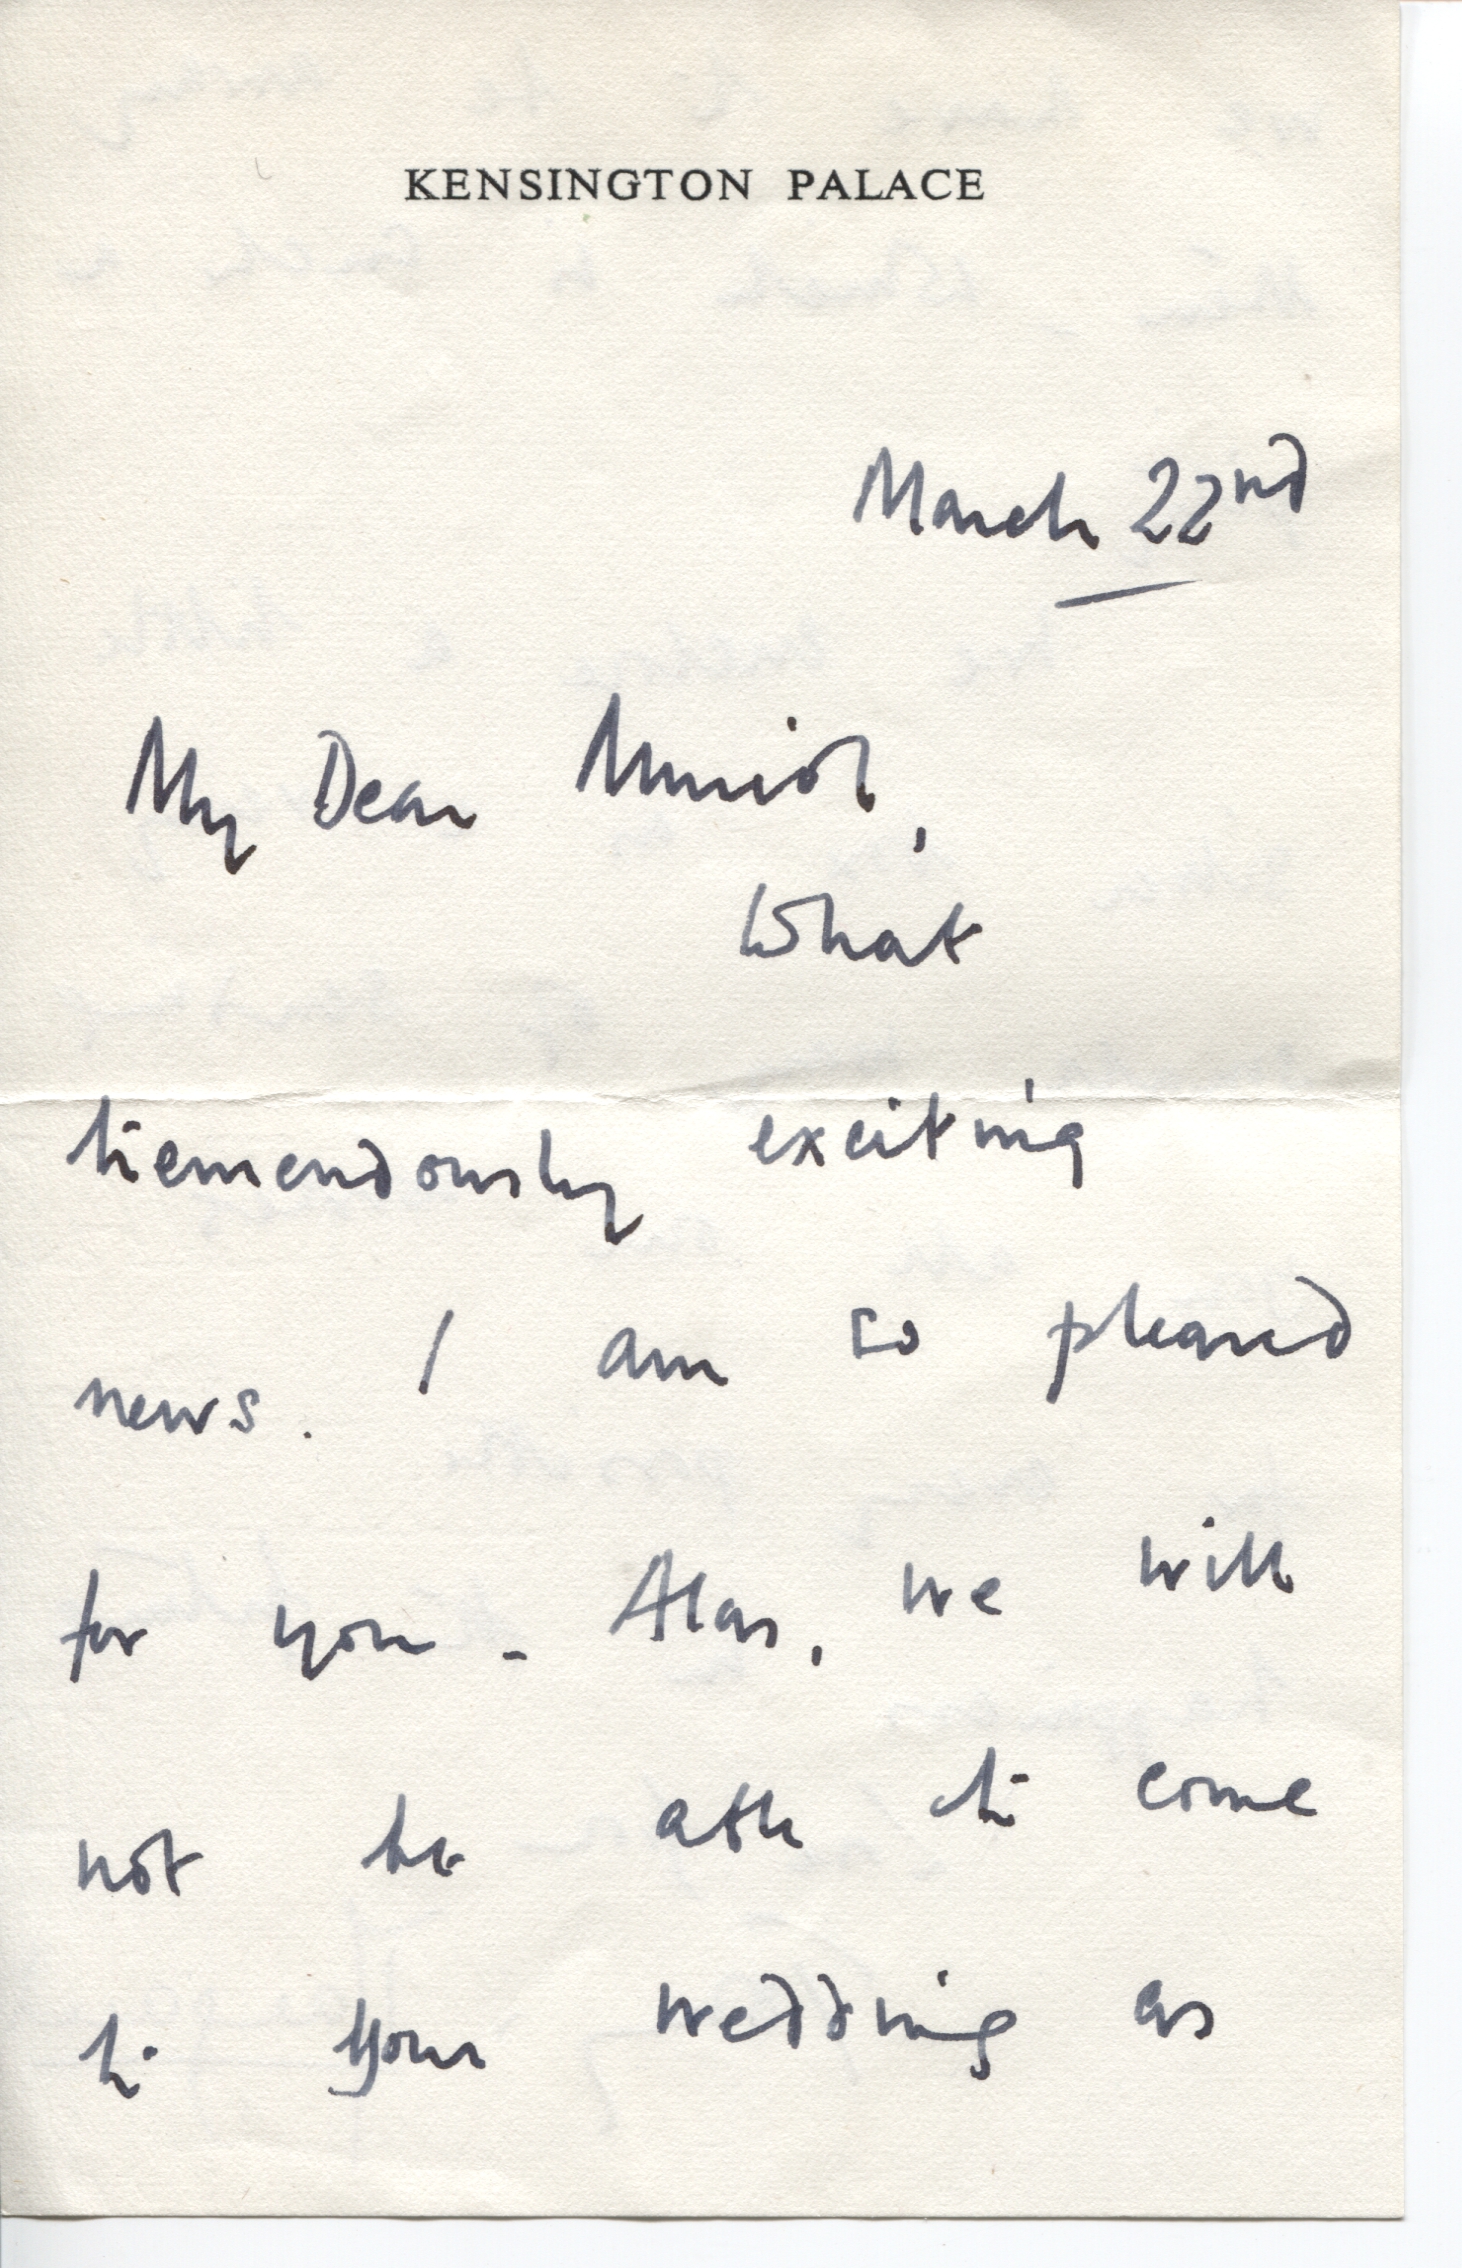 KENSINGTON PALACE
March 22nd
My Dear Muriel,
What
tremendously exciting
news. I am so pleased
for you - Alas, we will
not be able to come
to your wedding as